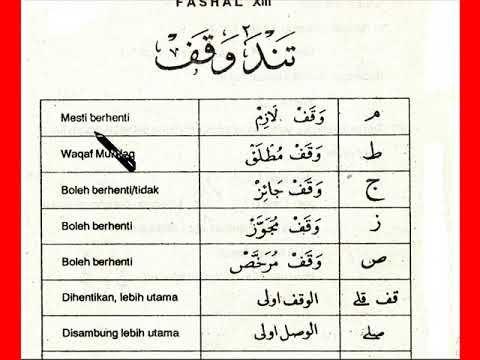 FASHAL XIII
تند٢ وقف
Mesti berhenti وَقَفْ لَازِمْ م
Waqaf Mutlaq وَقَفْ مُطْلَقْ ط
Boleh berhenti/tidak وَقَفْ جَائِزْ ج
Boleh berhenti وَقَفْ مُجَوَّزْ ز
Boleh berhenti وَقَفْ مُرَخَّصْ ص
Dihentikan, lebih utama الوقف اولى قف قلے
Disambung lebih utama الوصل اولى صلے